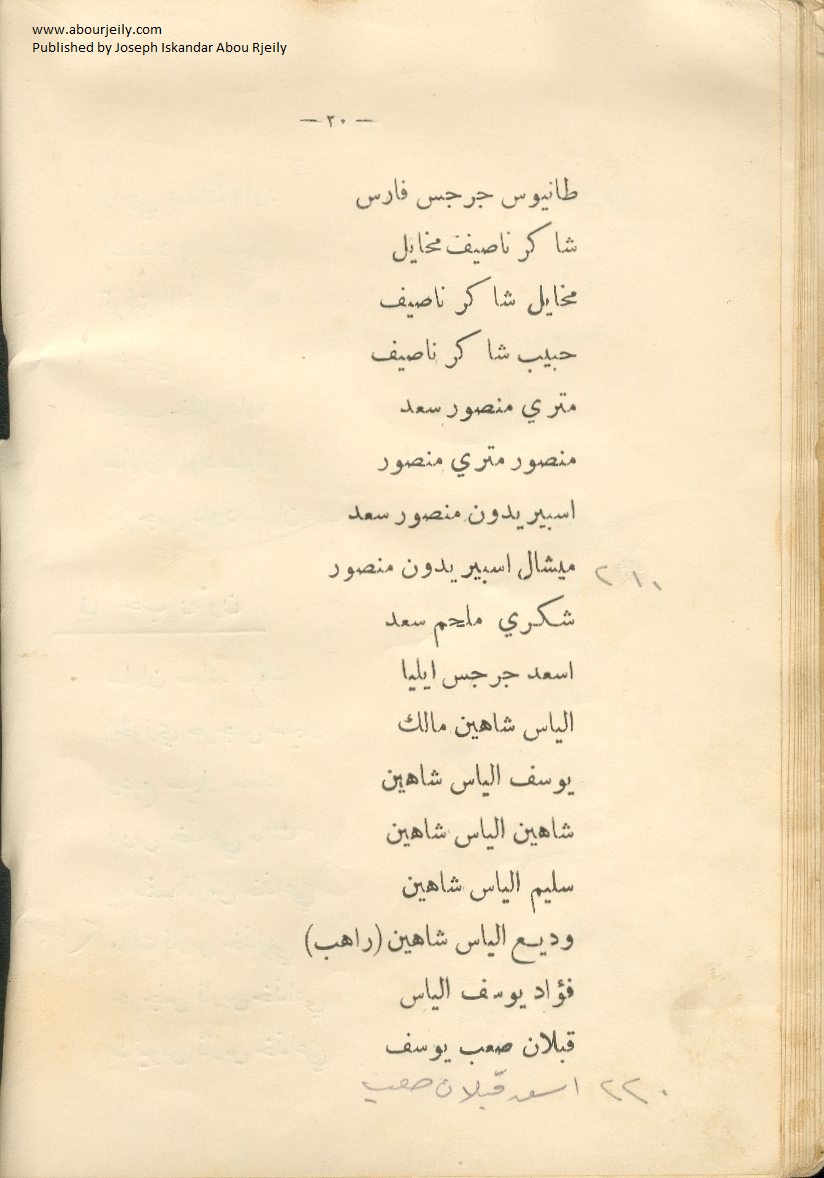 www.abourjeily.com
Published by Joseph Iskandar Abou Rjeily
— ٣٠ —
طانيوس جرجس فارس
شاكر ناصيف مخايل
مخايل شاكر ناصيف
حبيب شاكر ناصيف
متري منصور سعد
منصور متري منصور
اسبيريدون منصور سعد
ميشال اسبيريدون منصور ٢١٠
شكري ملحم سعد
اسعد جرجس ايليا
الياس شاهين مالك
يوسف الياس شاهين
شاهين الياس شاهين
سليم الياس شاهين
وديع الياس شاهين (راهب)
فؤاد يوسف الياس
قبلان صعب يوسف
٢٢٠ اسعد قبلان صعب